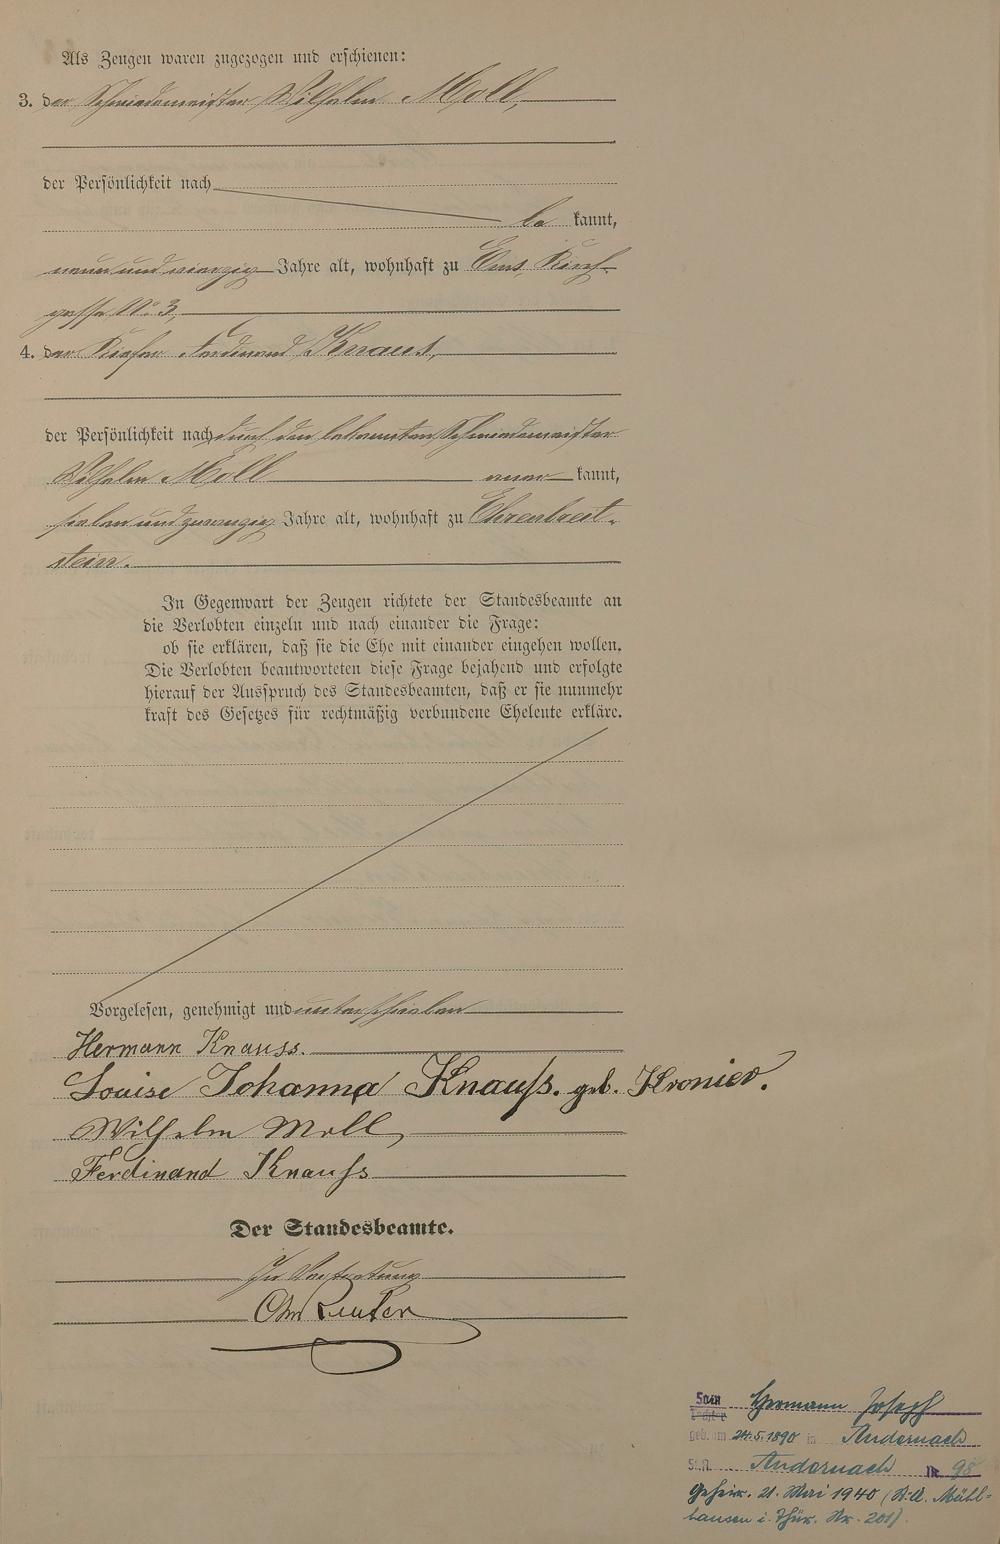 Als Zeugen waren zugezogen und erschienen:
3. der Schmiedemeister Wilhelm Moll,
der Persönlichkeit nach
be kannt,
neun und vierzig Jahre alt, wohnhaft zu Ems, Kirch-
gasse No. 3,
4. der Küfer Ferdinand Knauss,
der Persönlichkeit nach durch den bekannten Schmiedemeister
Wilhelm Moll aner kannt,
sieben und zwanzig Jahre alt, wohnhaft zu Ehrenbreit-
stein.
In Gegenwart der Zeugen richtete der Standesbeamte an
die Verlobten einzeln und nach einander die Frage:
ob sie erklären, daß sie die Ehe mit einander eingehen wollen.
Die Verlobten beantworteten diese Frage bejahend und erfolgte
hierauf der Ausspruch des Standesbeamten, daß er sie nunmehr
kraft des Gesetzes für rechtmäßig verbundene Eheleute erkläre.
Vorgelesen, genehmigt und unterschrieben
Hermann Knauss.
Louise Johanna Knauß. geb. Kronier.
Wilhelm Moll,
Ferdinand Knauß
Der Standesbeamte.
In Vertretung
Chr Reuter
Sohn Hermann Joseph
Tochter
geb. am 24.5.1890 in Andernach
St.A. Andernach Nr. 98
Geheir. 21. Mai 1940 (St.A. Mühl-
hausen i. Thür. Nr. 201).